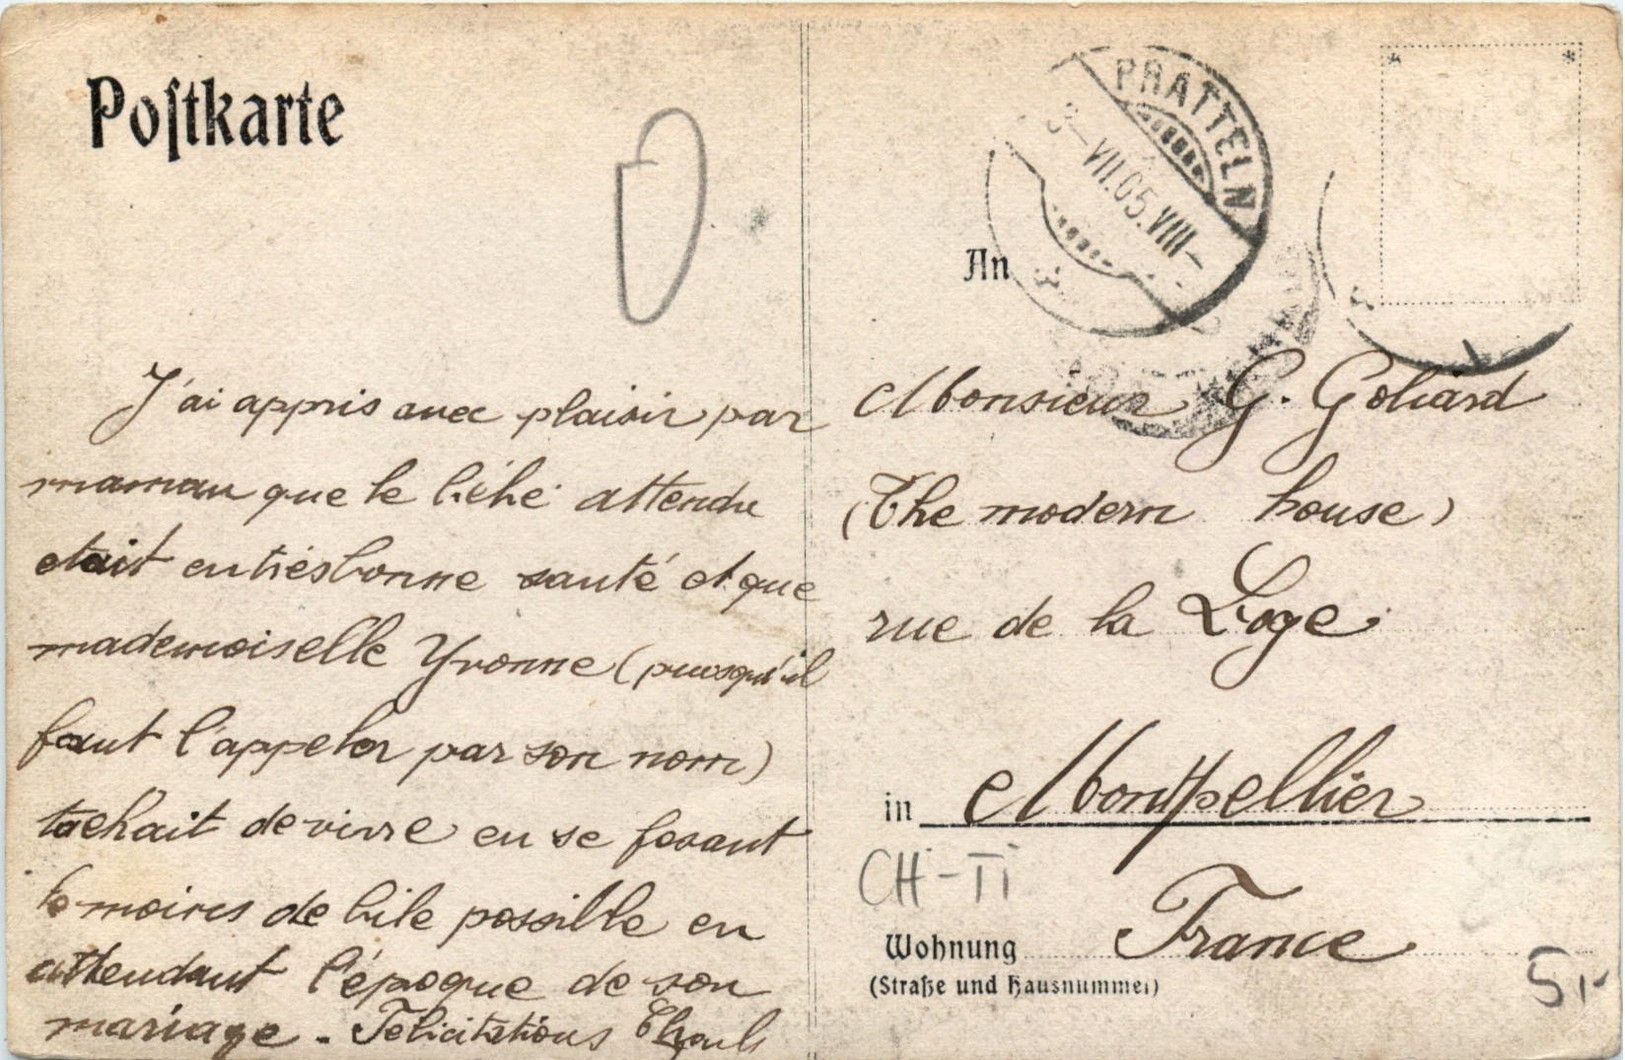 Postkarte
J'ai appris avec plaisir par
maman que le bébé attendu
était en très bonne santé et que
mademoiselle Yvonne (puisqu'il
faut l'appeler par son nom)
tachait de vivre en se fesant
le moins de bile possible en
attendant l'époque de son
mariage - Félicitations
PRATTELN
VII.05.VIII-
An
Monsieur G. Goliard
(The modern house)
rue de la Loge
in Montpellier
CH-TI
Wohnung France
(Straße und Hausnummer)
5,-